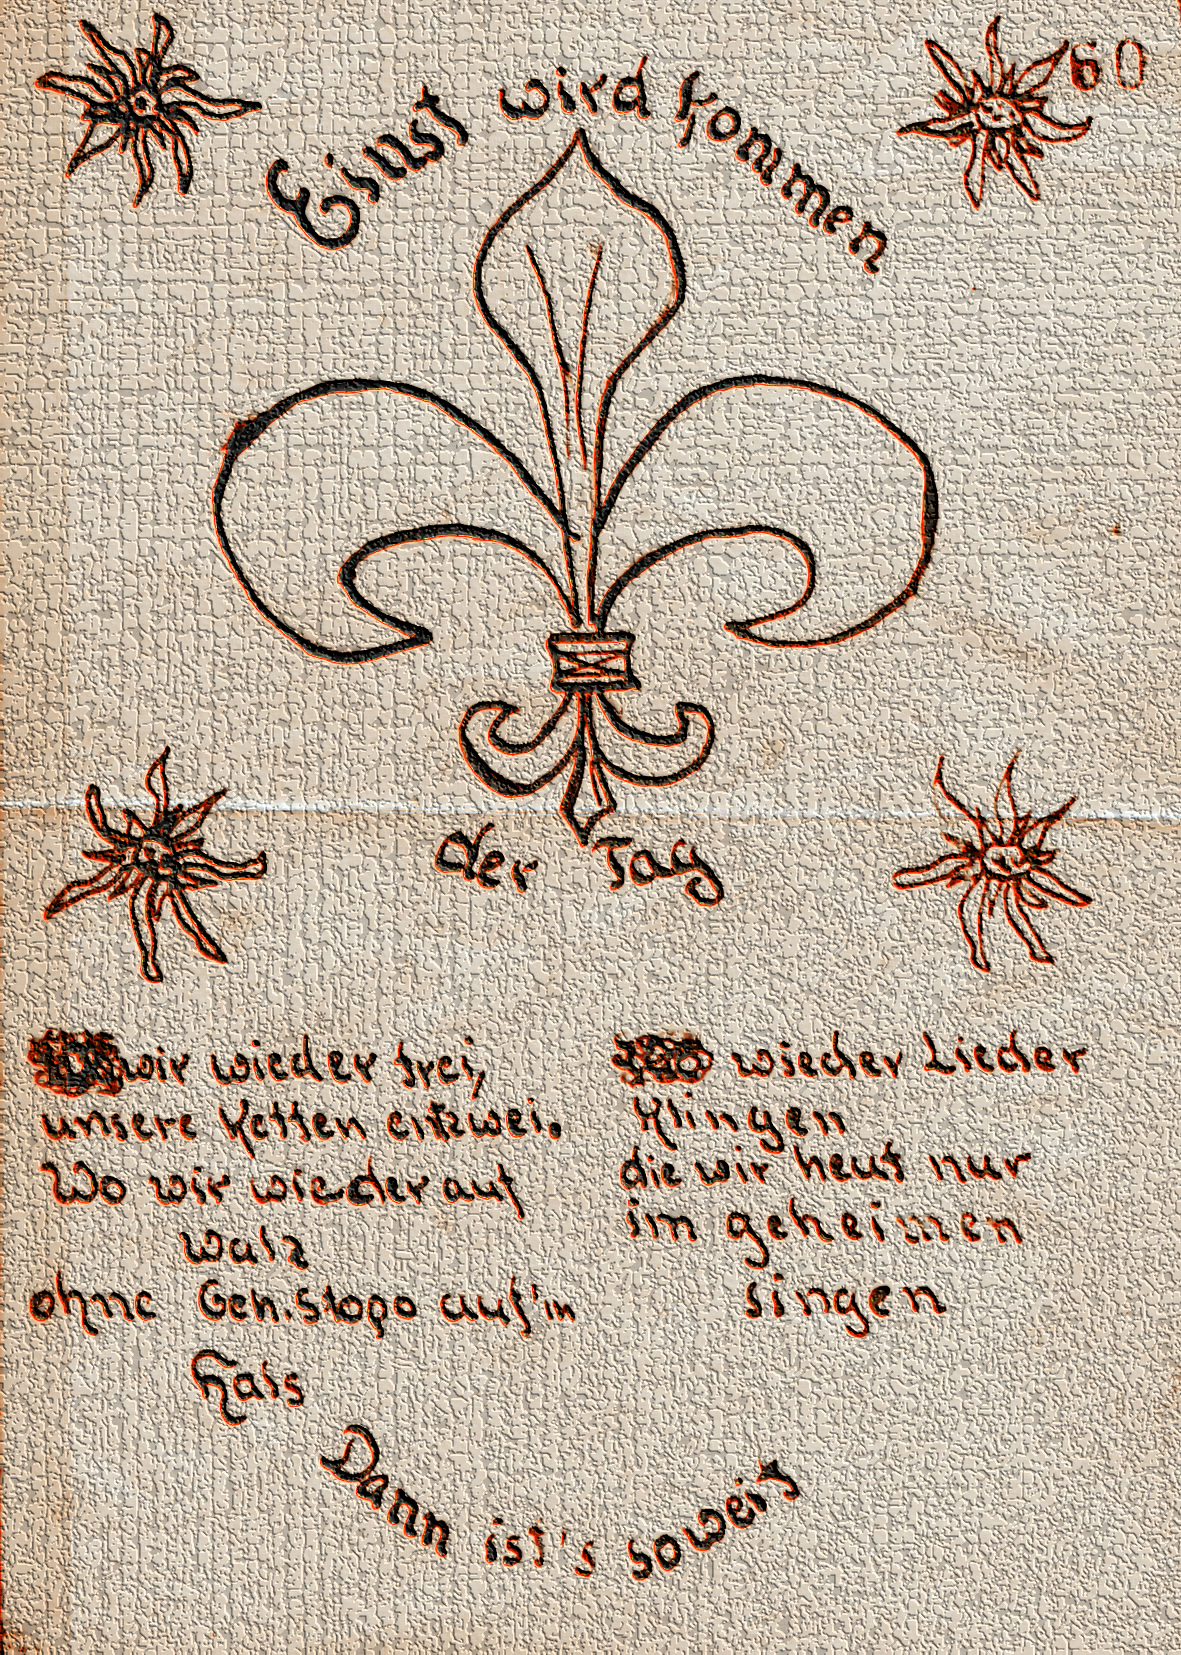 60
Einst wird kommen
der Tag
wir wieder frei,
unsere Ketten entzwei.
Wo wir wieder auf
Walz
ohne Geh.Stapo auf'm
Hals
wieder Lieder
klingen
die wir heut nur
im geheimen
singen
Dann ist's soweit